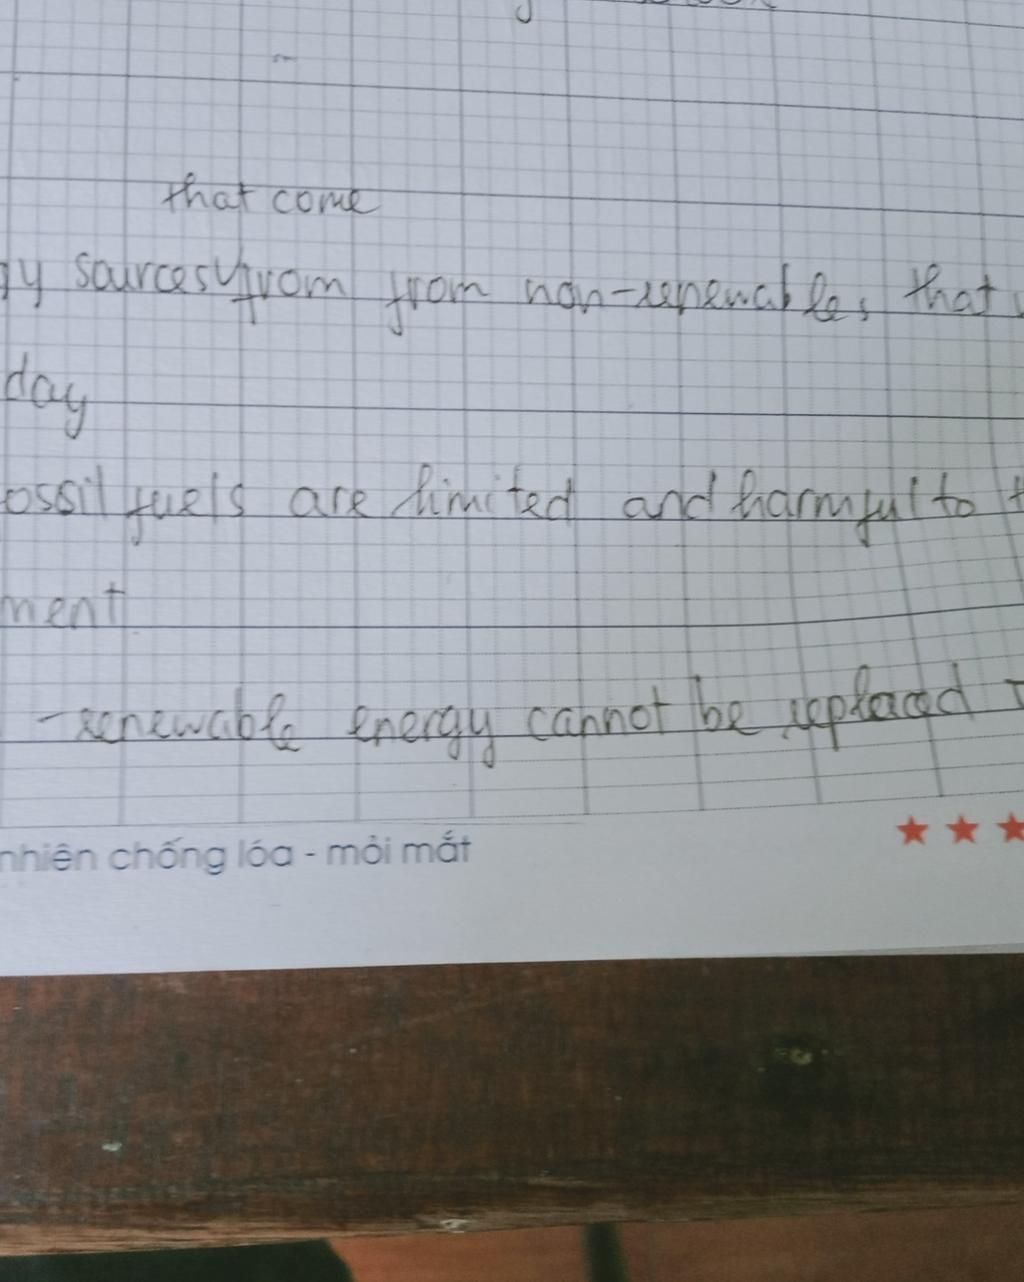 that come
gy sources from from non-renewable, that
day
ossil fuels are limited and harmful to t
ment
-renewable energy cannot be replaced
nhiên chống lóa - mỏi mắt